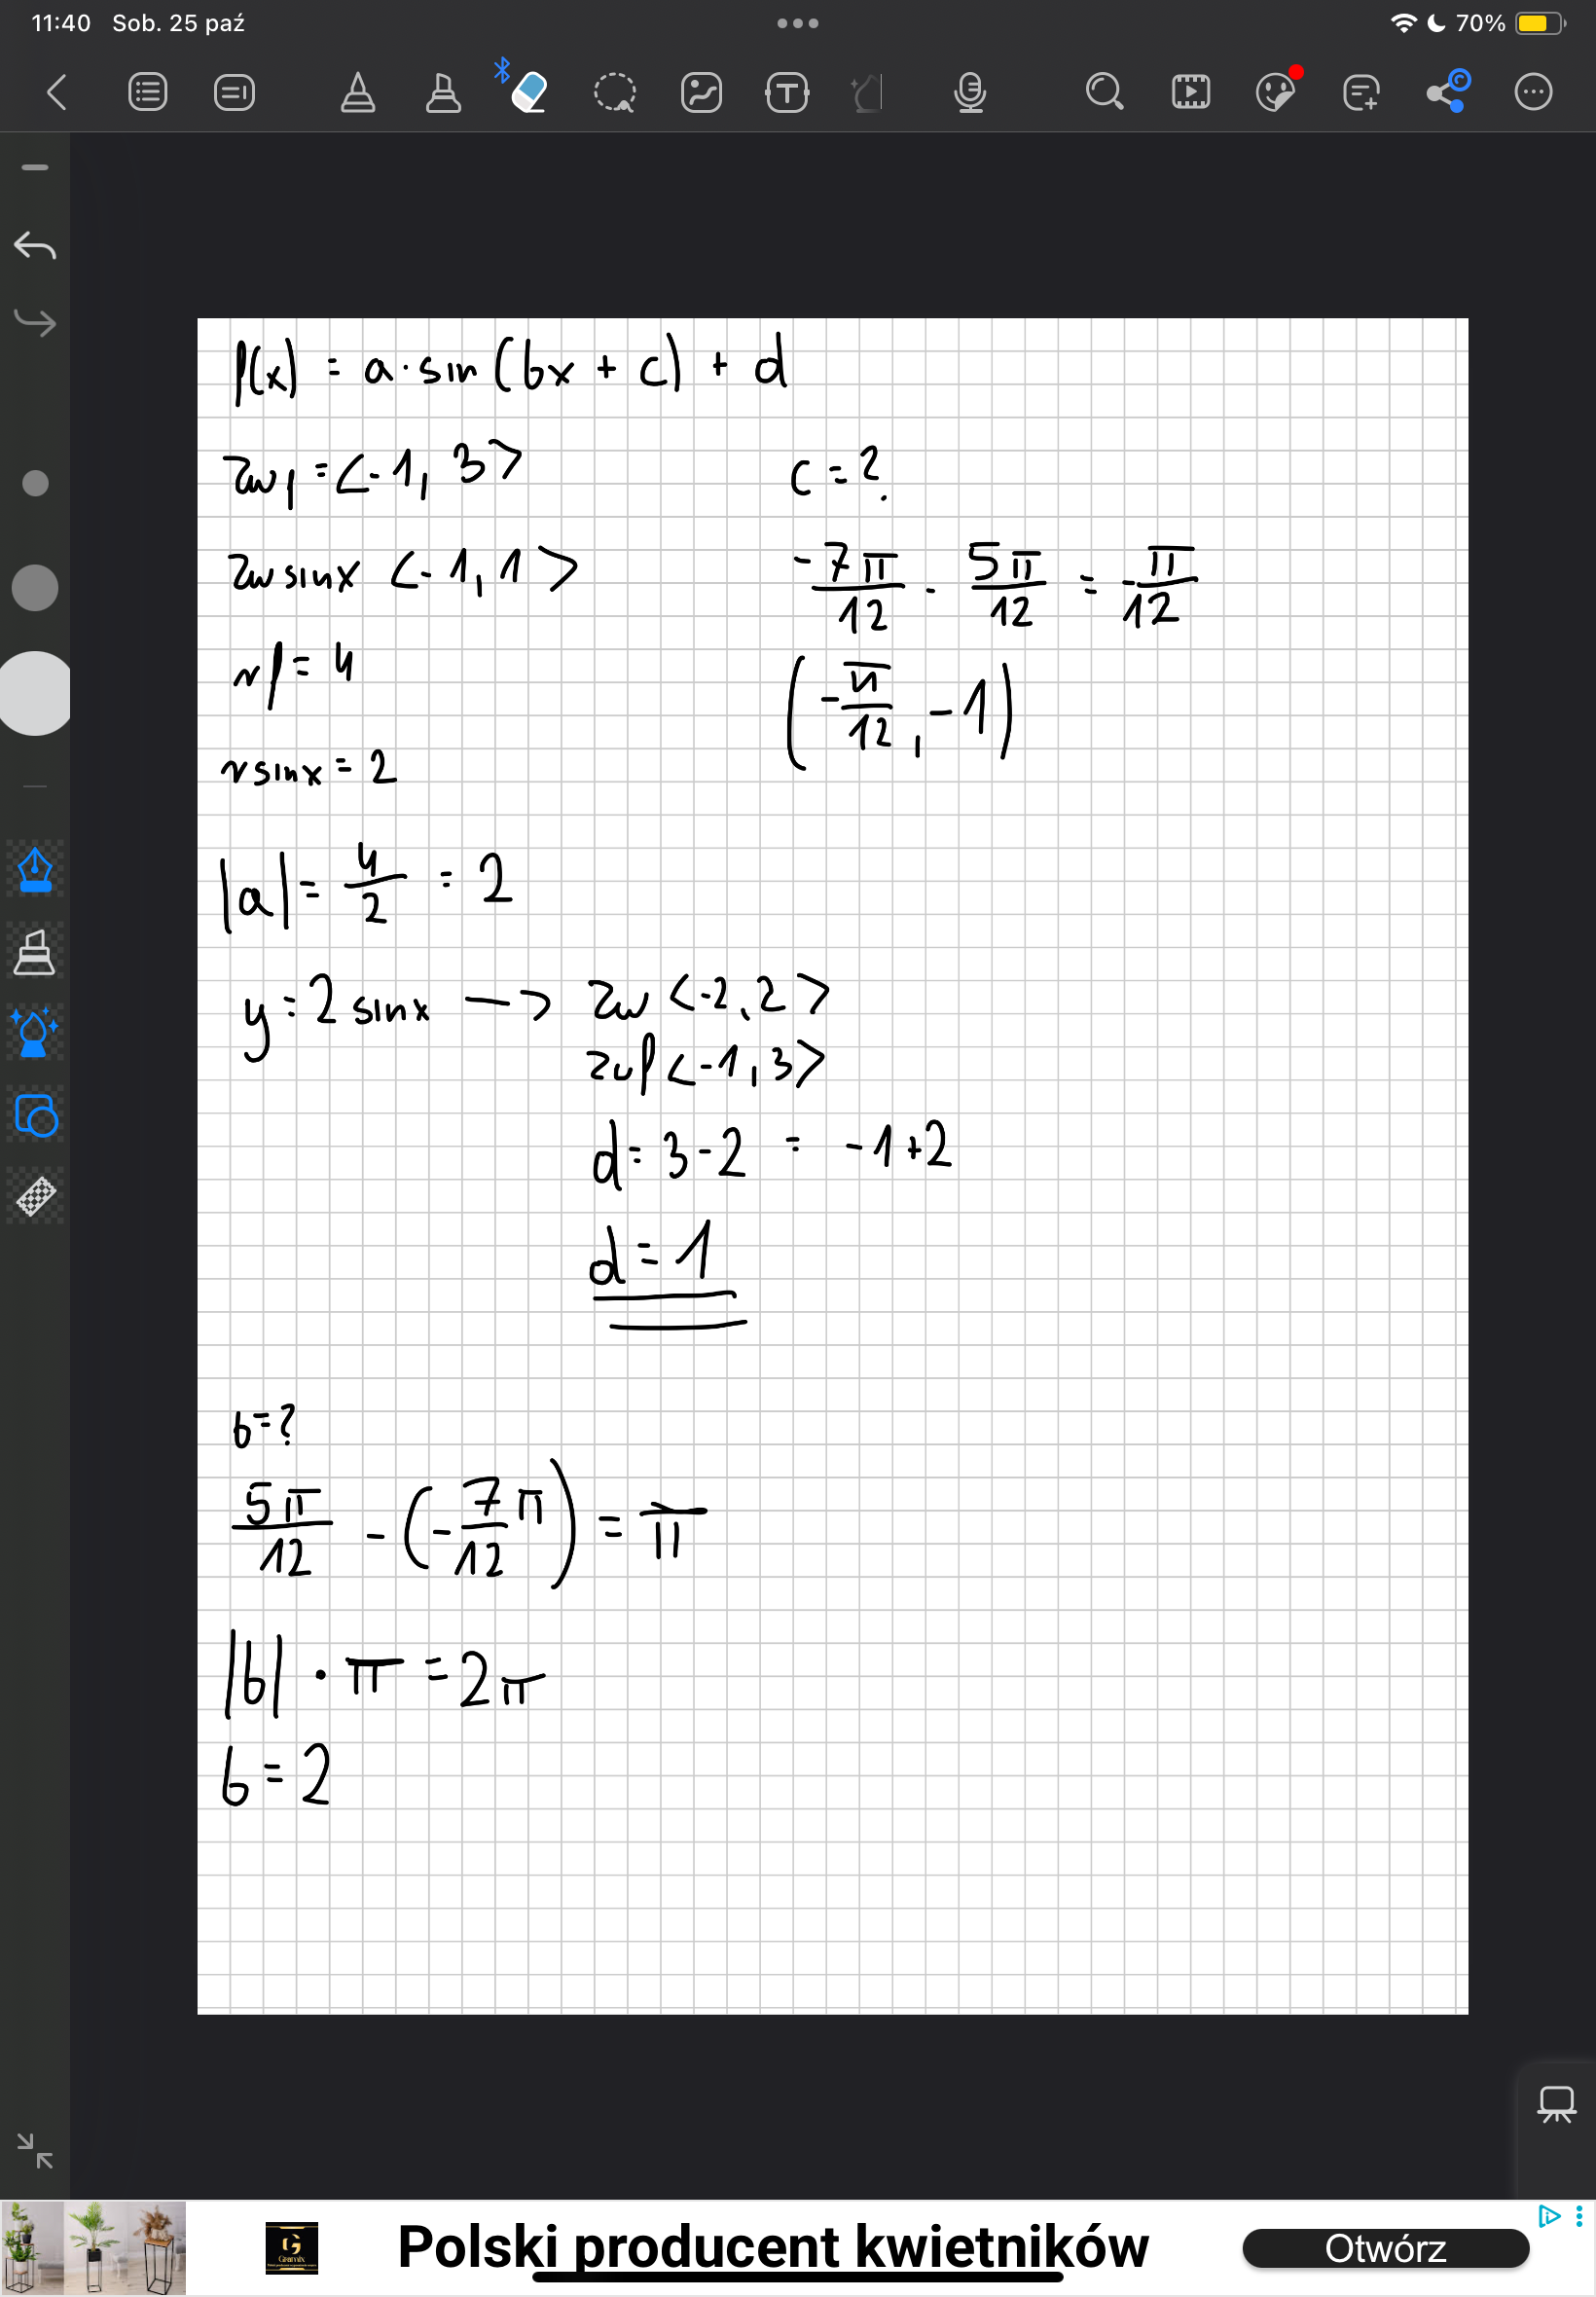 11:40 Sob. 25 paź
70%
f(x) = a · sin (bx + c) + d
zwf = <-1, 3>
zw sinx <-1, 1>
rf = 4
r sinx = 2
|a| = 4/2 = 2
y = 2 sinx —> zw <-2, 2>
zwf <-1, 3>
d = 3 - 2 = -1 + 2
d = 1
b = ?
5π/12 - (-7/12 π) = π
|b| · π = 2π
b = 2
c = ?
-7π/12 - 5π/12 = -π/12
(-π/12, -1)
Polski producent kwietników
Otwórz